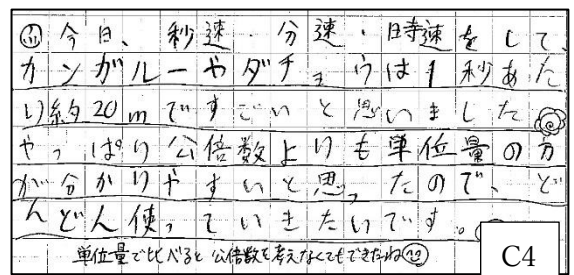 ㋵ 今日、秒速・分速・時速をして、
カンガルーやダチョウは1秒あた
り約20mですごいと思いました
やっぱり公倍数よりも単位量の方
が分かりやすいと思ったので、ど
んどん使っていきたいです。
単位量で比べると公倍数を考えなくてもできたね
C4